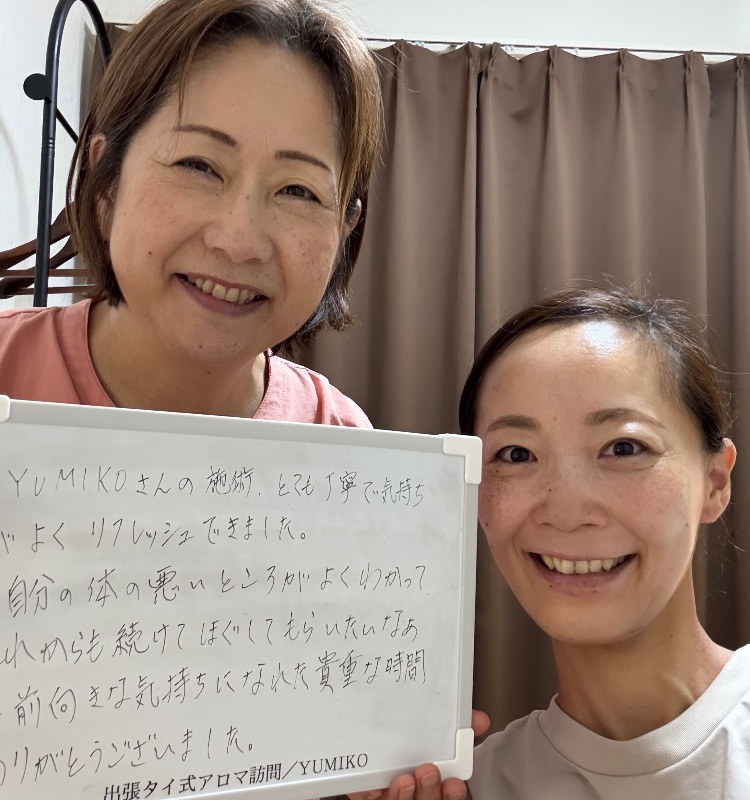 YUMIKOさんの施術、とても丁寧で気持ち
がよくリフレッシュできました。
自分の体の悪いところがよくわかって
れからも続けてほぐしてもらいたいなぁ
前向きな気持ちになれた貴重な時間
りがとうございました。
出張タイ式アロマ訪問/YUMIKO